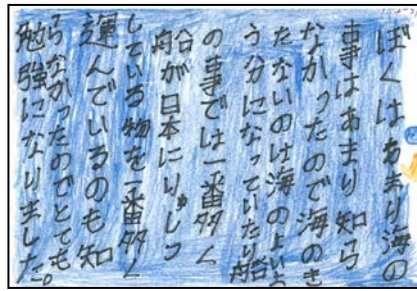 ぼくはあまり海の
事はあまり知ら
なかったので海のき
たないのは海のえいよ
う分になっていたり船
の事では一番多く
船が日本にゆしゅつ
している物を一番多く
運んでいるのも知
らなかったのでとても
勉強になりました。